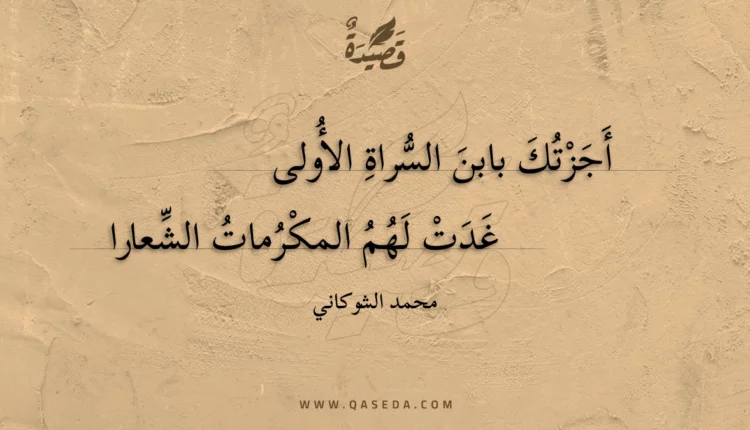 قَصِيدَةٌ
أَجَزْتُكَ بابنَ السُّراةِ الأُولى
غَدَتْ لَهُمُ المكْرُماتُ الشِّعارا
محمد الشوكاني
WWW.QASEDA.COM